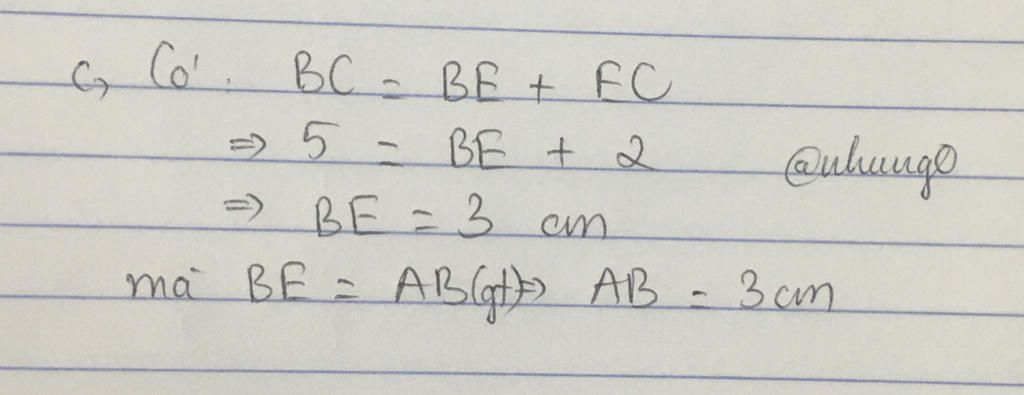 c, Có: BC = BE + EC
⇒ 5 = BE + 2 @nhung0
⇒ BE = 3 cm
mà BE = AB(gt) ⇒ AB = 3cm